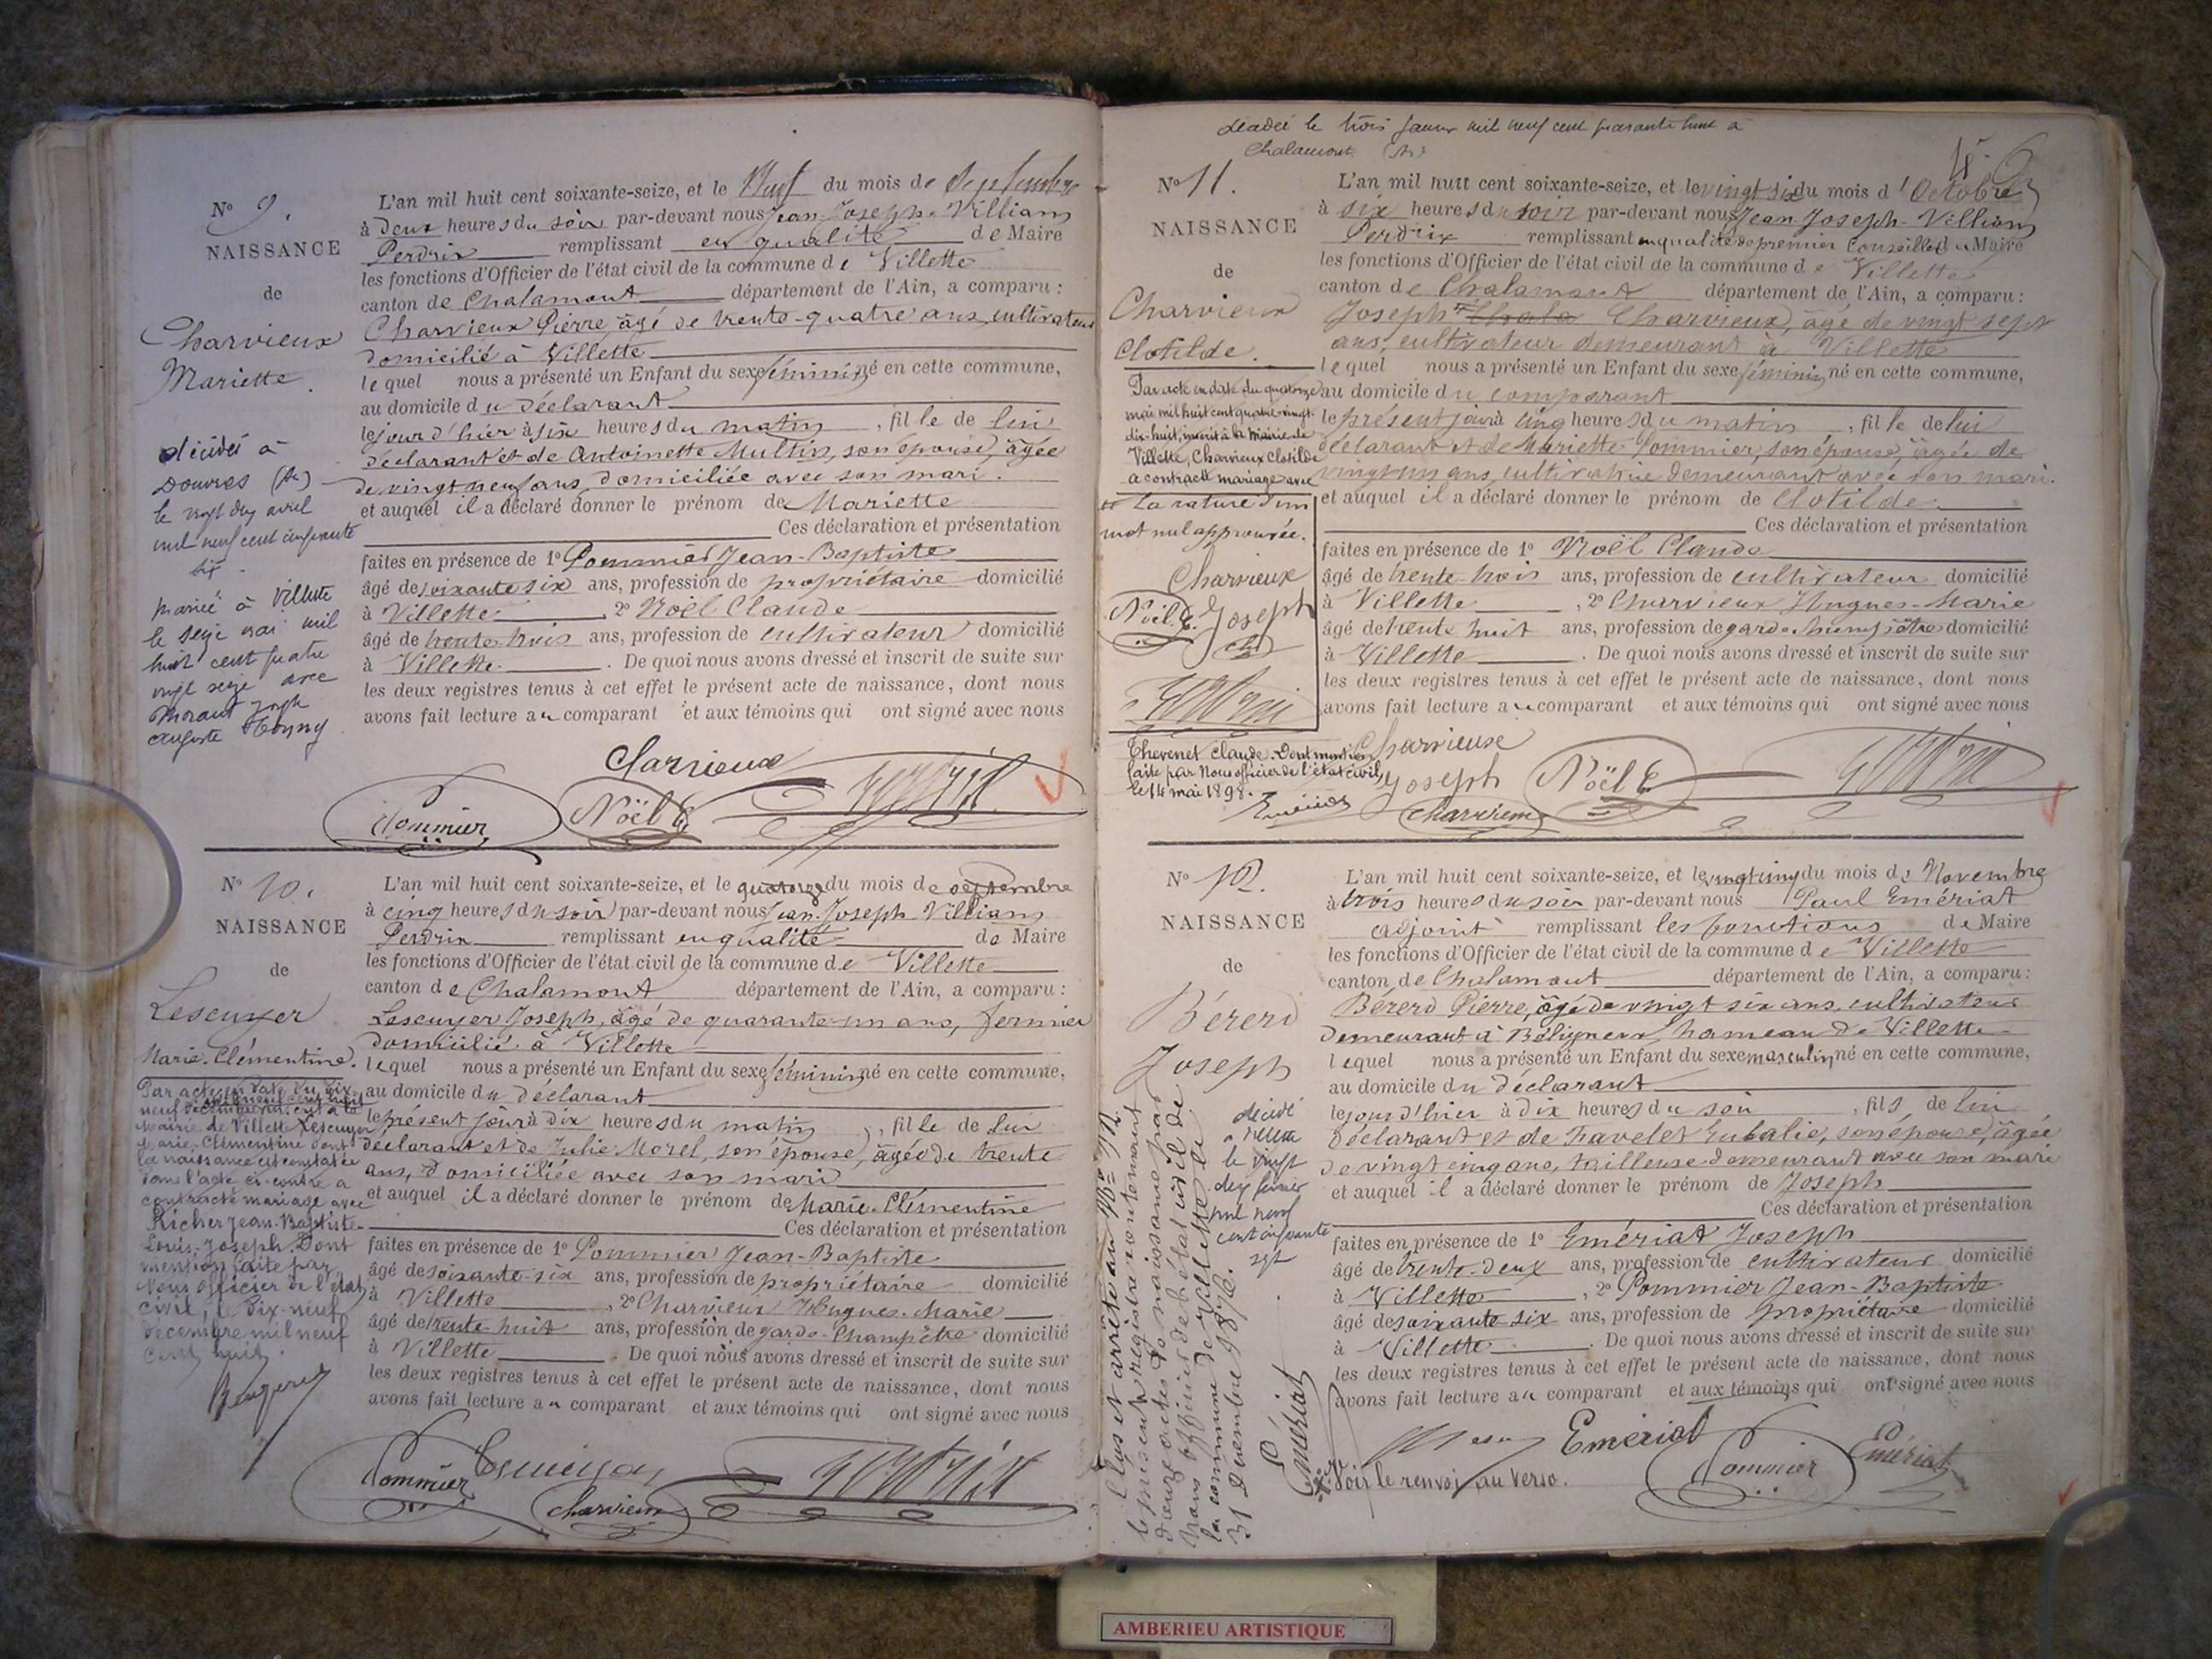 N° 9.
NAISSANCE
de
Charvieux
Mariette.
décédée à
Douvres (Ain)
le vingt deux avril
mil neuf cent cinquante
six.
mariée à Villette
le seize mai mil
huit cent quatre
vingt seize avec
Morant Joseph
Auguste
L'an mil huit cent soixante-seize, et le Neuf du mois de Septembre
à deux heures du soir par-devant nous Jean-Joseph-Villiam
Perdrix remplissant en qualité de Maire
les fonctions d'Officier de l'état civil de la commune de Villette
canton de Chalamont département de l'Ain, a comparu :
Charvieux Pierre, âgé de trente-quatre ans, cultivateur
domicilié à Villette
lequel nous a présenté un Enfant du sexe féminin, né en cette commune,
au domicile du déclarant
le jour d'hier à six heures du matin, fille de lui
déclarant et de Antoinette Multin, son épouse, âgée
de vingt neuf ans, domiciliée avec son mari.
et auquel il a déclaré donner le prénom de Mariette
Ces déclaration et présentation
faites en présence de 1° Pommier Jean-Baptiste
âgé de soixante six ans, profession de propriétaire domicilié
à Villette, 2° Noël Claude
âgé de trente trois ans, profession de cultivateur domicilié
à Villette. De quoi nous avons dressé et inscrit de suite sur
les deux registres tenus à cet effet le présent acte de naissance, dont nous
avons fait lecture au comparant et aux témoins qui ont signé avec nous
Charvieux
Pommier Noël C. Perdrix
N° 10.
NAISSANCE
de
Lescuyer
Marie-Clémentine.
Par acte en date du dix
neuf décembre mil neuf cent huit inscrit à la
Mairie de Villette, Lescuyer
Marie-Clémentine dont
la naissance est constatée
dans l'acte ci-contre a
contracté mariage avec
Richer Jean-Baptiste-
Louis-Joseph. Dont
mention faite par
Nous officier de l'état
civil, le dix-neuf
décembre mil neuf
cent huit.
L'an mil huit cent soixante-seize, et le quatorze du mois de septembre
à cinq heures du soir par-devant nous Jean-Joseph-Villiam
Perdrix remplissant en qualité de Maire
les fonctions d'Officier de l'état civil de la commune de Villette
canton de Chalamont département de l'Ain, a comparu :
Lescuyer Joseph, âgé de quarante-un ans, fermier
domicilié à Villette
lequel nous a présenté un Enfant du sexe féminin, né en cette commune,
au domicile du déclarant
le présent jour à dix heures du matin, fille de lui
déclarant et de Julie Morel, son épouse, âgée de trente
ans, domiciliée avec son mari
et auquel il a déclaré donner le prénom de Marie-Clémentine
Ces déclaration et présentation
faites en présence de 1° Pommier Jean-Baptiste
âgé de soixante-six ans, profession de propriétaire domicilié
à Villette, 2° Charvieux Hugues-Marie
âgé de trente-huit ans, profession de garde-Champêtre domicilié
à Villette. De quoi nous avons dressé et inscrit de suite sur
les deux registres tenus à cet effet le présent acte de naissance, dont nous
avons fait lecture au comparant et aux témoins qui ont signé avec nous
Pommier Lescuyer Charvieux Perdrix
décédée le trois janvier mil neuf cent quarante à
Chalamont (Ain)
N° 11.
NAISSANCE
de
Charvieux
Clotilde.
Par acte en date du quatorze
mai mil huit cent quatre-vingt-
dix-huit, inscrit à la mairie de
Villette, Charvieux Clotilde
a contracté mariage avec
La rature d'un
mot nul approuvée.
Charvieux
Noël C. Joseph
Ch.
Perdrix
Thevenet Claude. Dont mention
faite par Nous officier de l'état civil,
le 14 mai 1898.
Emériat
L'an mil huit cent soixante-seize, et le vingt six du mois d'Octobre
à six heures du soir par-devant nous Jean Joseph-Villiam
Perdrix remplissant en qualité de premier Conseiller de Maire
les fonctions d'Officier de l'état civil de la commune de Villette
canton de Chalamont département de l'Ain, a comparu :
Joseph Chala Charvieux, âgé de vingt sept
ans, cultivateur demeurant à Villette
lequel nous a présenté un Enfant du sexe féminin, né en cette commune,
au domicile du comparant
le présent jour à cinq heures du matin, fille de lui
déclarant et de Mariette Pommier, son épouse, âgée de
vingt-un ans, cultivatrice demeurant avec son mari.
et auquel il a déclaré donner le prénom de Clotilde
Ces déclaration et présentation
faites en présence de 1° Noël Claude
âgé de trente-trois ans, profession de cultivateur domicilié
à Villette, 2° Charvieux Hugues-Marie
âgé de trente huit ans, profession de garde champêtre domicilié
à Villette. De quoi nous avons dressé et inscrit de suite sur
les deux registres tenus à cet effet le présent acte de naissance, dont nous
avons fait lecture au comparant et aux témoins qui ont signé avec nous
Charvieux
Joseph Noël C. Perdrix
Charvieux
N° 12.
NAISSANCE
de
Bérerd
Joseph
décédé
à Villette
le vingt
deux février
mil neuf
cent cinquante
sept
Clos et arrêté au N° 12
le présent registre contenant
douze actes de naissance par
Nous officier de l'état civil de
la commune de Villette le
31 Décembre 1876.
Emériat
L'an mil huit cent soixante-seize, et le vingt cinq du mois de Novembre
à trois heures du soir par-devant nous Paul Emériat
adjoint remplissant les fonctions de Maire
les fonctions d'Officier de l'état civil de la commune de Villette
canton de Chalamont département de l'Ain, a comparu :
Bérerd Pierre, âgé de vingt six ans, cultivateur
demeurant à Béligneux, hameau de Villette
lequel nous a présenté un Enfant du sexe masculin, né en cette commune,
au domicile du déclarant
le jour d'hier à dix heures du soir, fils de lui
déclarant et de Travelet Eulalie, son épouse, âgée
de vingt cinq ans, tailleuse demeurant avec son mari
et auquel il a déclaré donner le prénom de Joseph
Ces déclaration et présentation
faites en présence de 1° Emériat Joseph
âgé de trente-deux ans, profession de cultivateur domicilié
à Villette, 2° Pommier Jean-Baptiste
âgé de soixante-six ans, profession de propriétaire domicilié
à Villette. De quoi nous avons dressé et inscrit de suite sur
les deux registres tenus à cet effet le présent acte de naissance, dont nous
avons fait lecture au comparant et aux témoins qui ont signé avec nous
Emériat Pommier Emériat
Voir le renvoi au verso.
AMBERIEU ARTISTIQUE